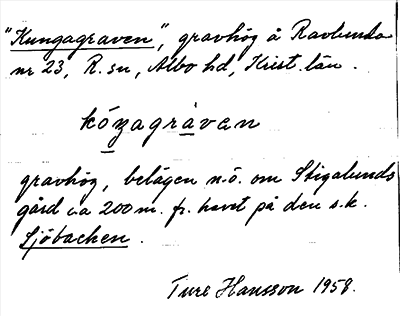 "Kungagraven", gravhög å Ravlunda
nr 23, R. sn, Albo hd, Krist. län.
kóŋagràvan
gravhög, belägen n.ö. om Stigalunds
gård ca 200 m. fr. havet på den s.k.
Sjöbacken.
Ture Hansson 1958.